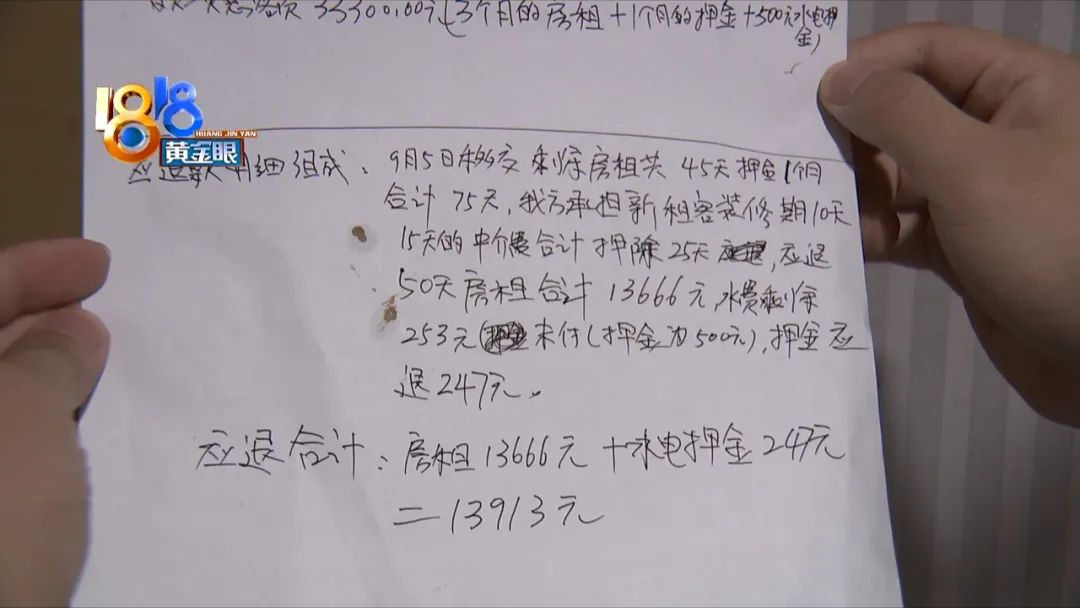 33300.00元(3个月的房租+1个月的押金+500元水电押
金)
1818
HUANG JIN YAN
黄金眼
应退款明细组成: 9月5日移交 剩余房租共 45天 押金1个月
合计 75天, 我方承担新租客装修期10天
15天的中介费合计 押除 25天, 应退
50天房租合计 13666元, 水费剩余
253元 未付(押金为500元), 押金应
退247元。
应退合计: 房租13666元+水电押金247元
=13913元